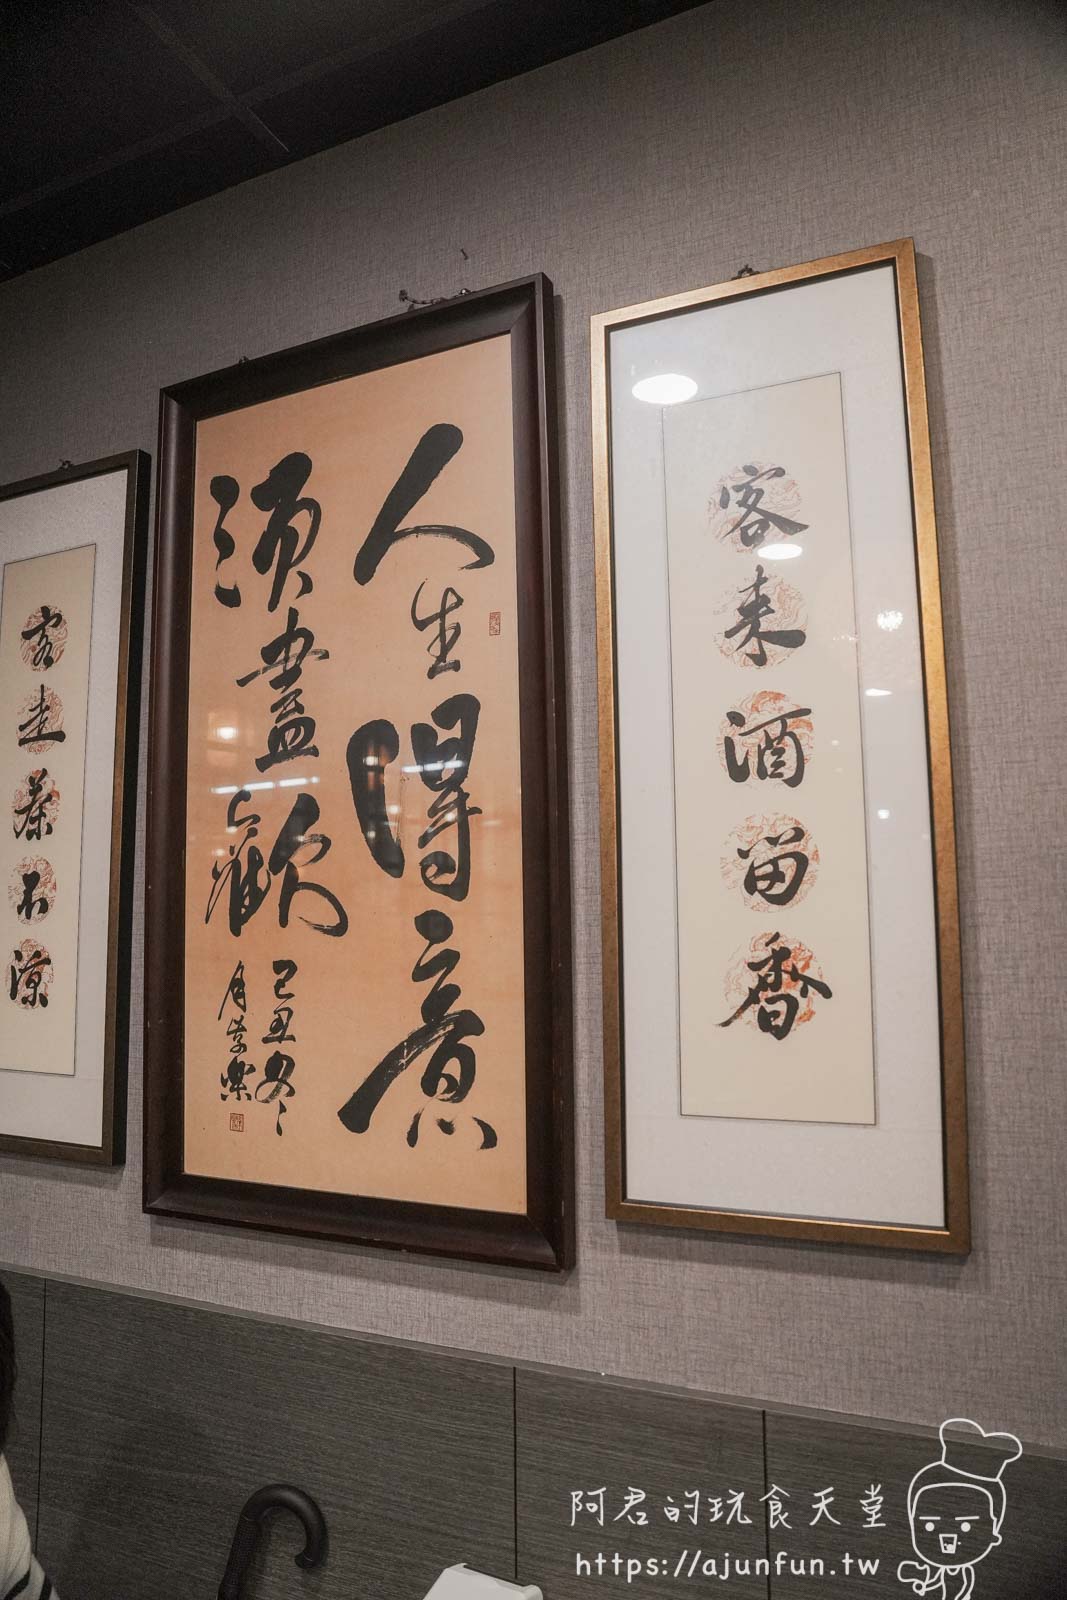 客來酒留香
人生得意
須盡歡
己丑冬
客走茶不涼
阿君的玩食天堂
https://ajunfun.tw